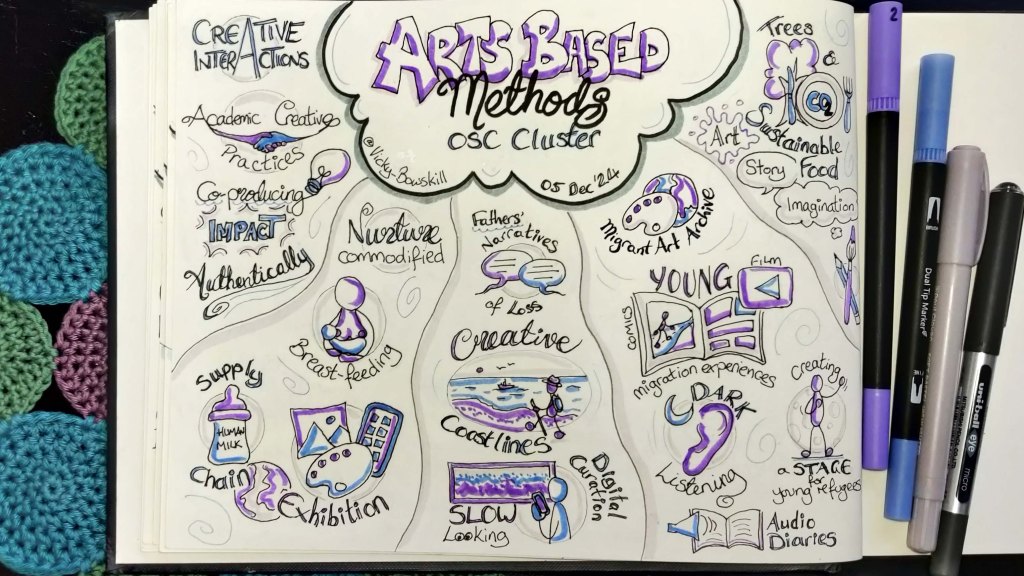 ARTS BASED
Methods
OSC Cluster
@Vicky-Bowskill
05 Dec '24
CREATIVE
INTERACTIONS
Academic Creative
Practices
Co-producing
IMPACT
Authentically
Nurture
commodified
Breast-feeding
Supply
HUMAN
MILK
Chain
Exhibition
Fathers'
Narratives
of Loss
Creative
Coastlines
SLOW
Looking
Digital
Curation
Migrant Art Archive
YOUNG
FILM
COMICS
migration experiences
DARK
Listening
Audio
Diaries
creating
a STAGE
for
young refugees
Trees
&
CO2
Sustainable
Food
Art
Story
Imagination
2
Dual Tip Marker
FINE
uni-ball eye
micro